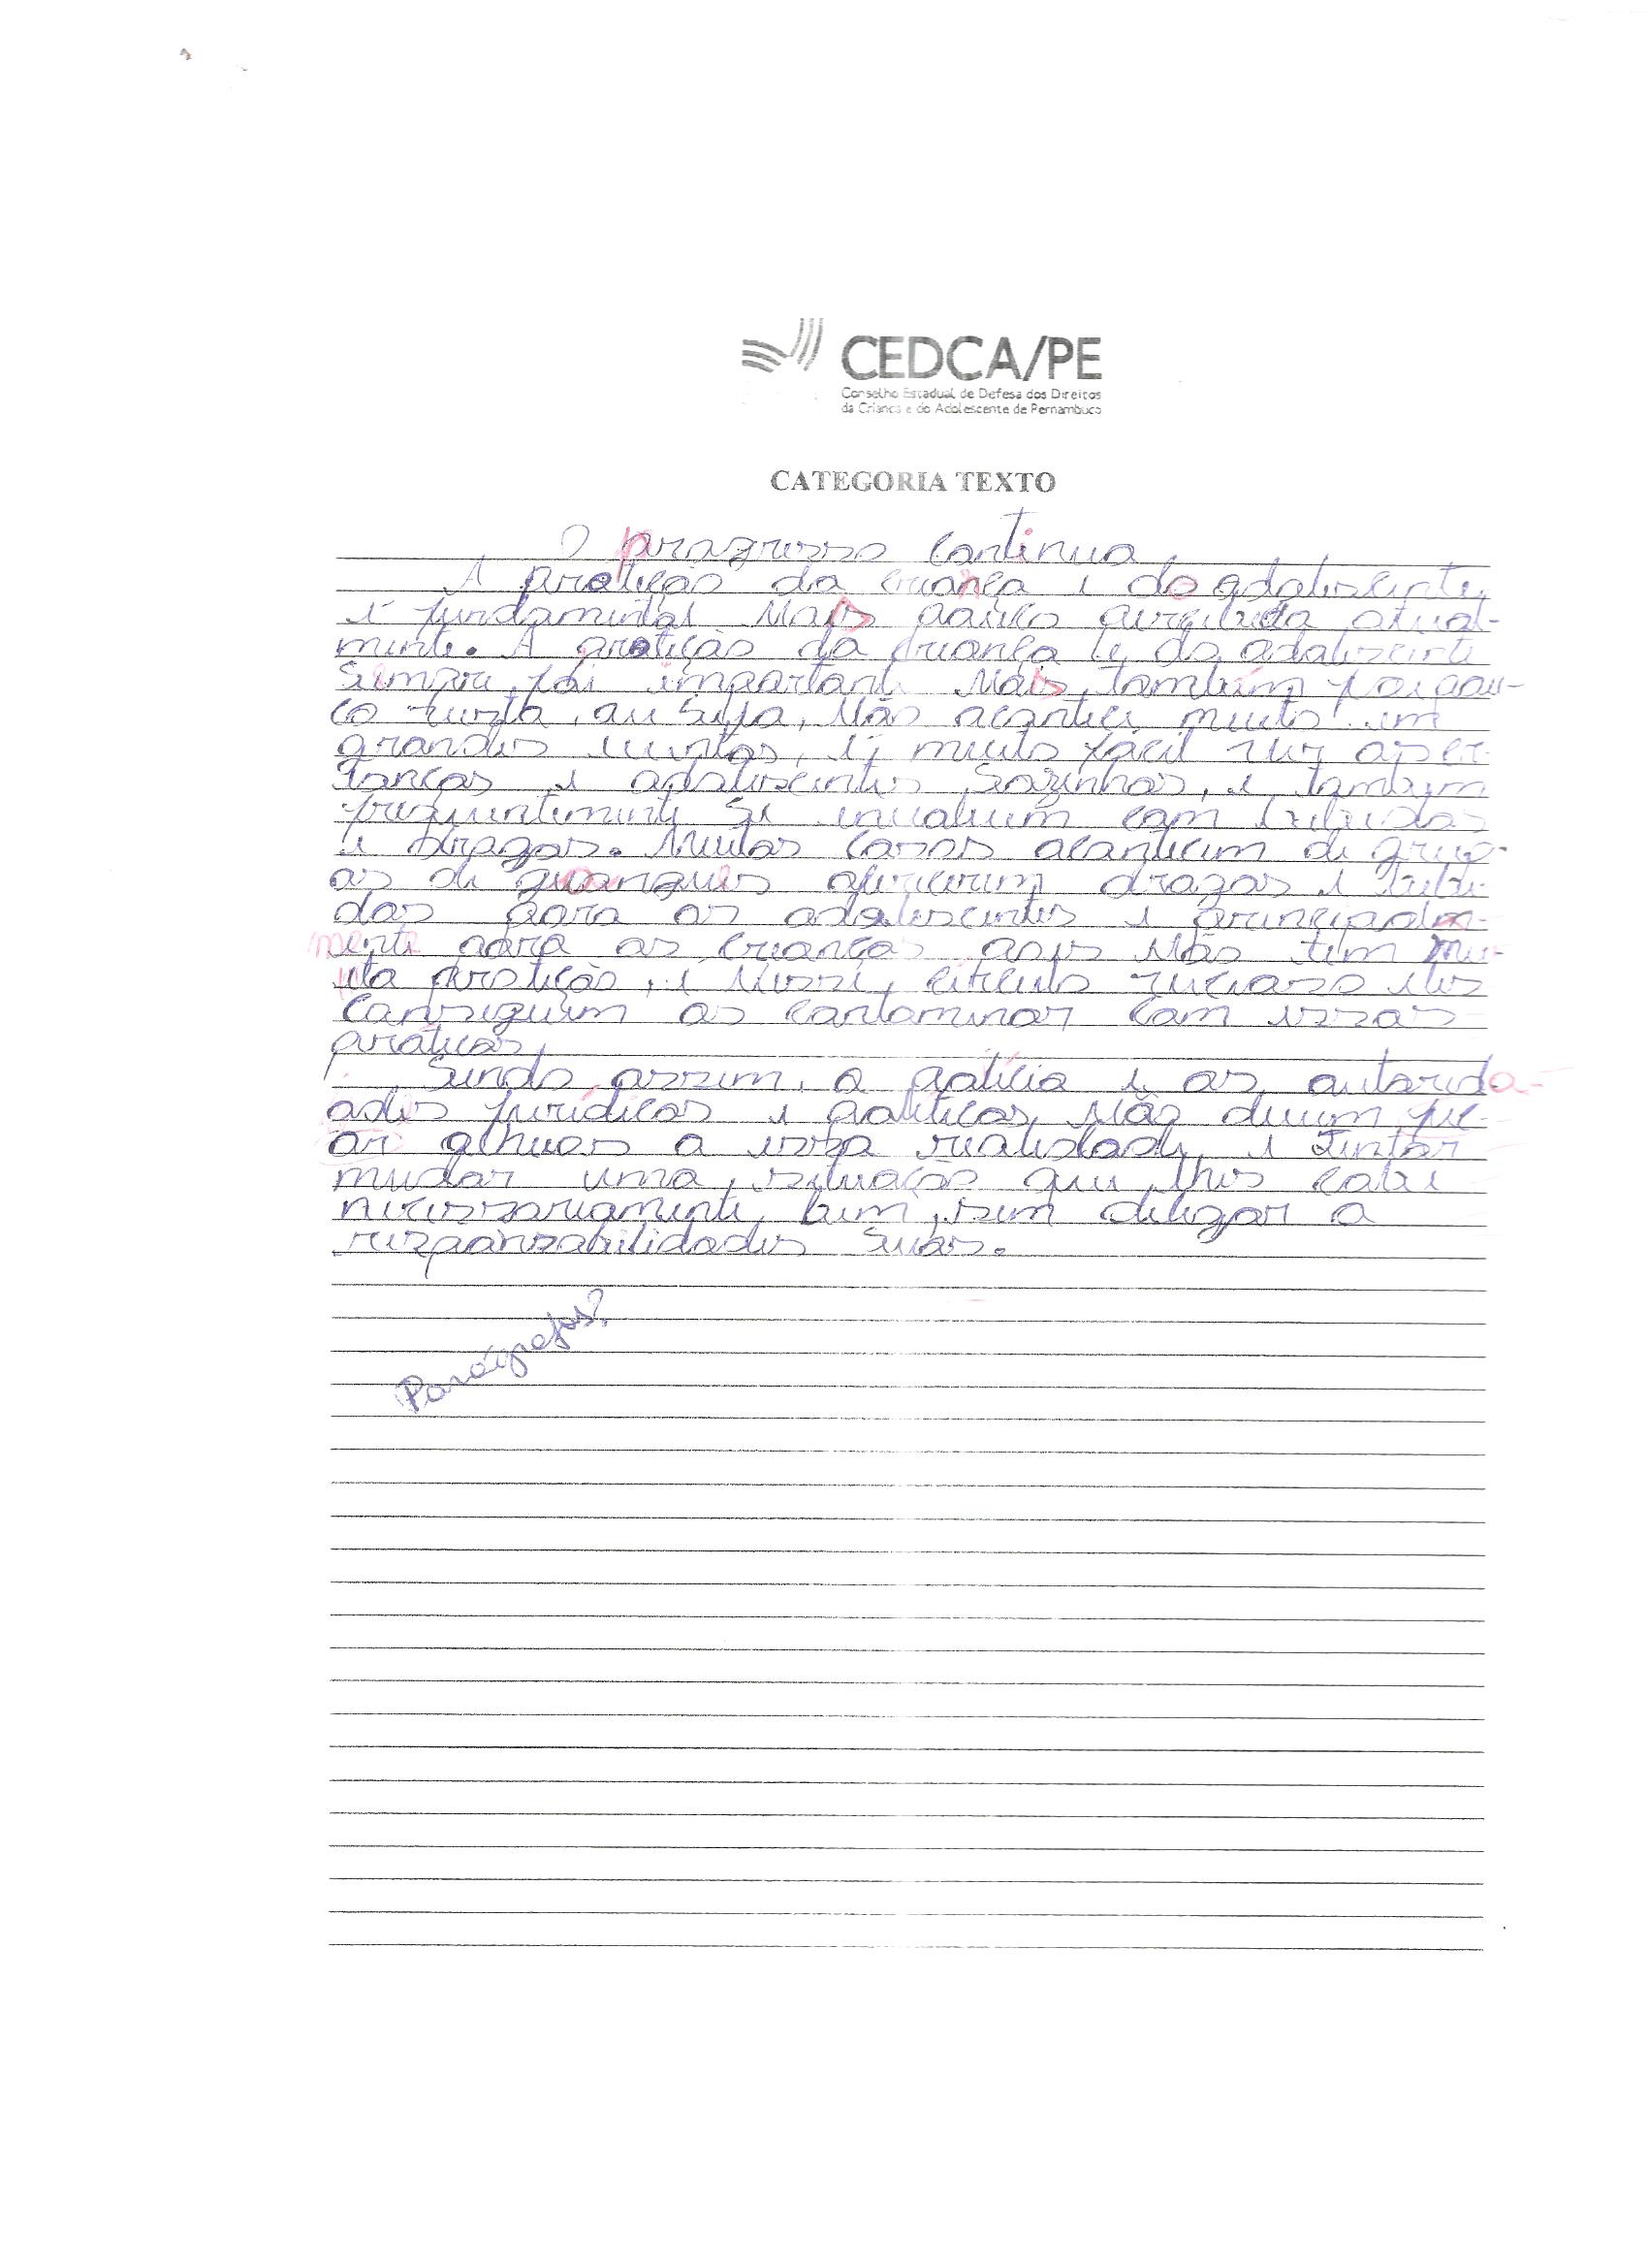 CEDCA/PE
Conselho Estadual de Defesa dos Direitos
da Criança e do Adolescente de Pernambuco
CATEGORIA TEXTO
O progresso continua
A proteção da criança e do adolescente,
é fundamental Mais pouco atual-
mente. A proteção da criança e do adolescente
Sempre foi importante Mais, também foi pou-
co vista, ou seja, Não acontece muito em
grandes eventos, é muito fácil ver as cri-
anças e adolescentes Sozinhos, e também
frequentemente se envolvem com bebidas
e drogas. Muitos casos acontecem de grup-
os de guangues oferecerem drogas e bebi-
das para os adolescentes e principalm-
ente para as crianças pois Não tem mu-
ita proteção, e Nesse, círculo vicioso eles
conseguem os contaminar com essas
práticas,
Sendo assim, a polícia e as autorida-
ades jurídicas e políticas, Não devem fic-
ar alheias a essa realidade, e Tentar
mudar uma situação que lhes cabe
necessariamente, bem, sem delegar a
responsabilidades suas.
Parágrafos?